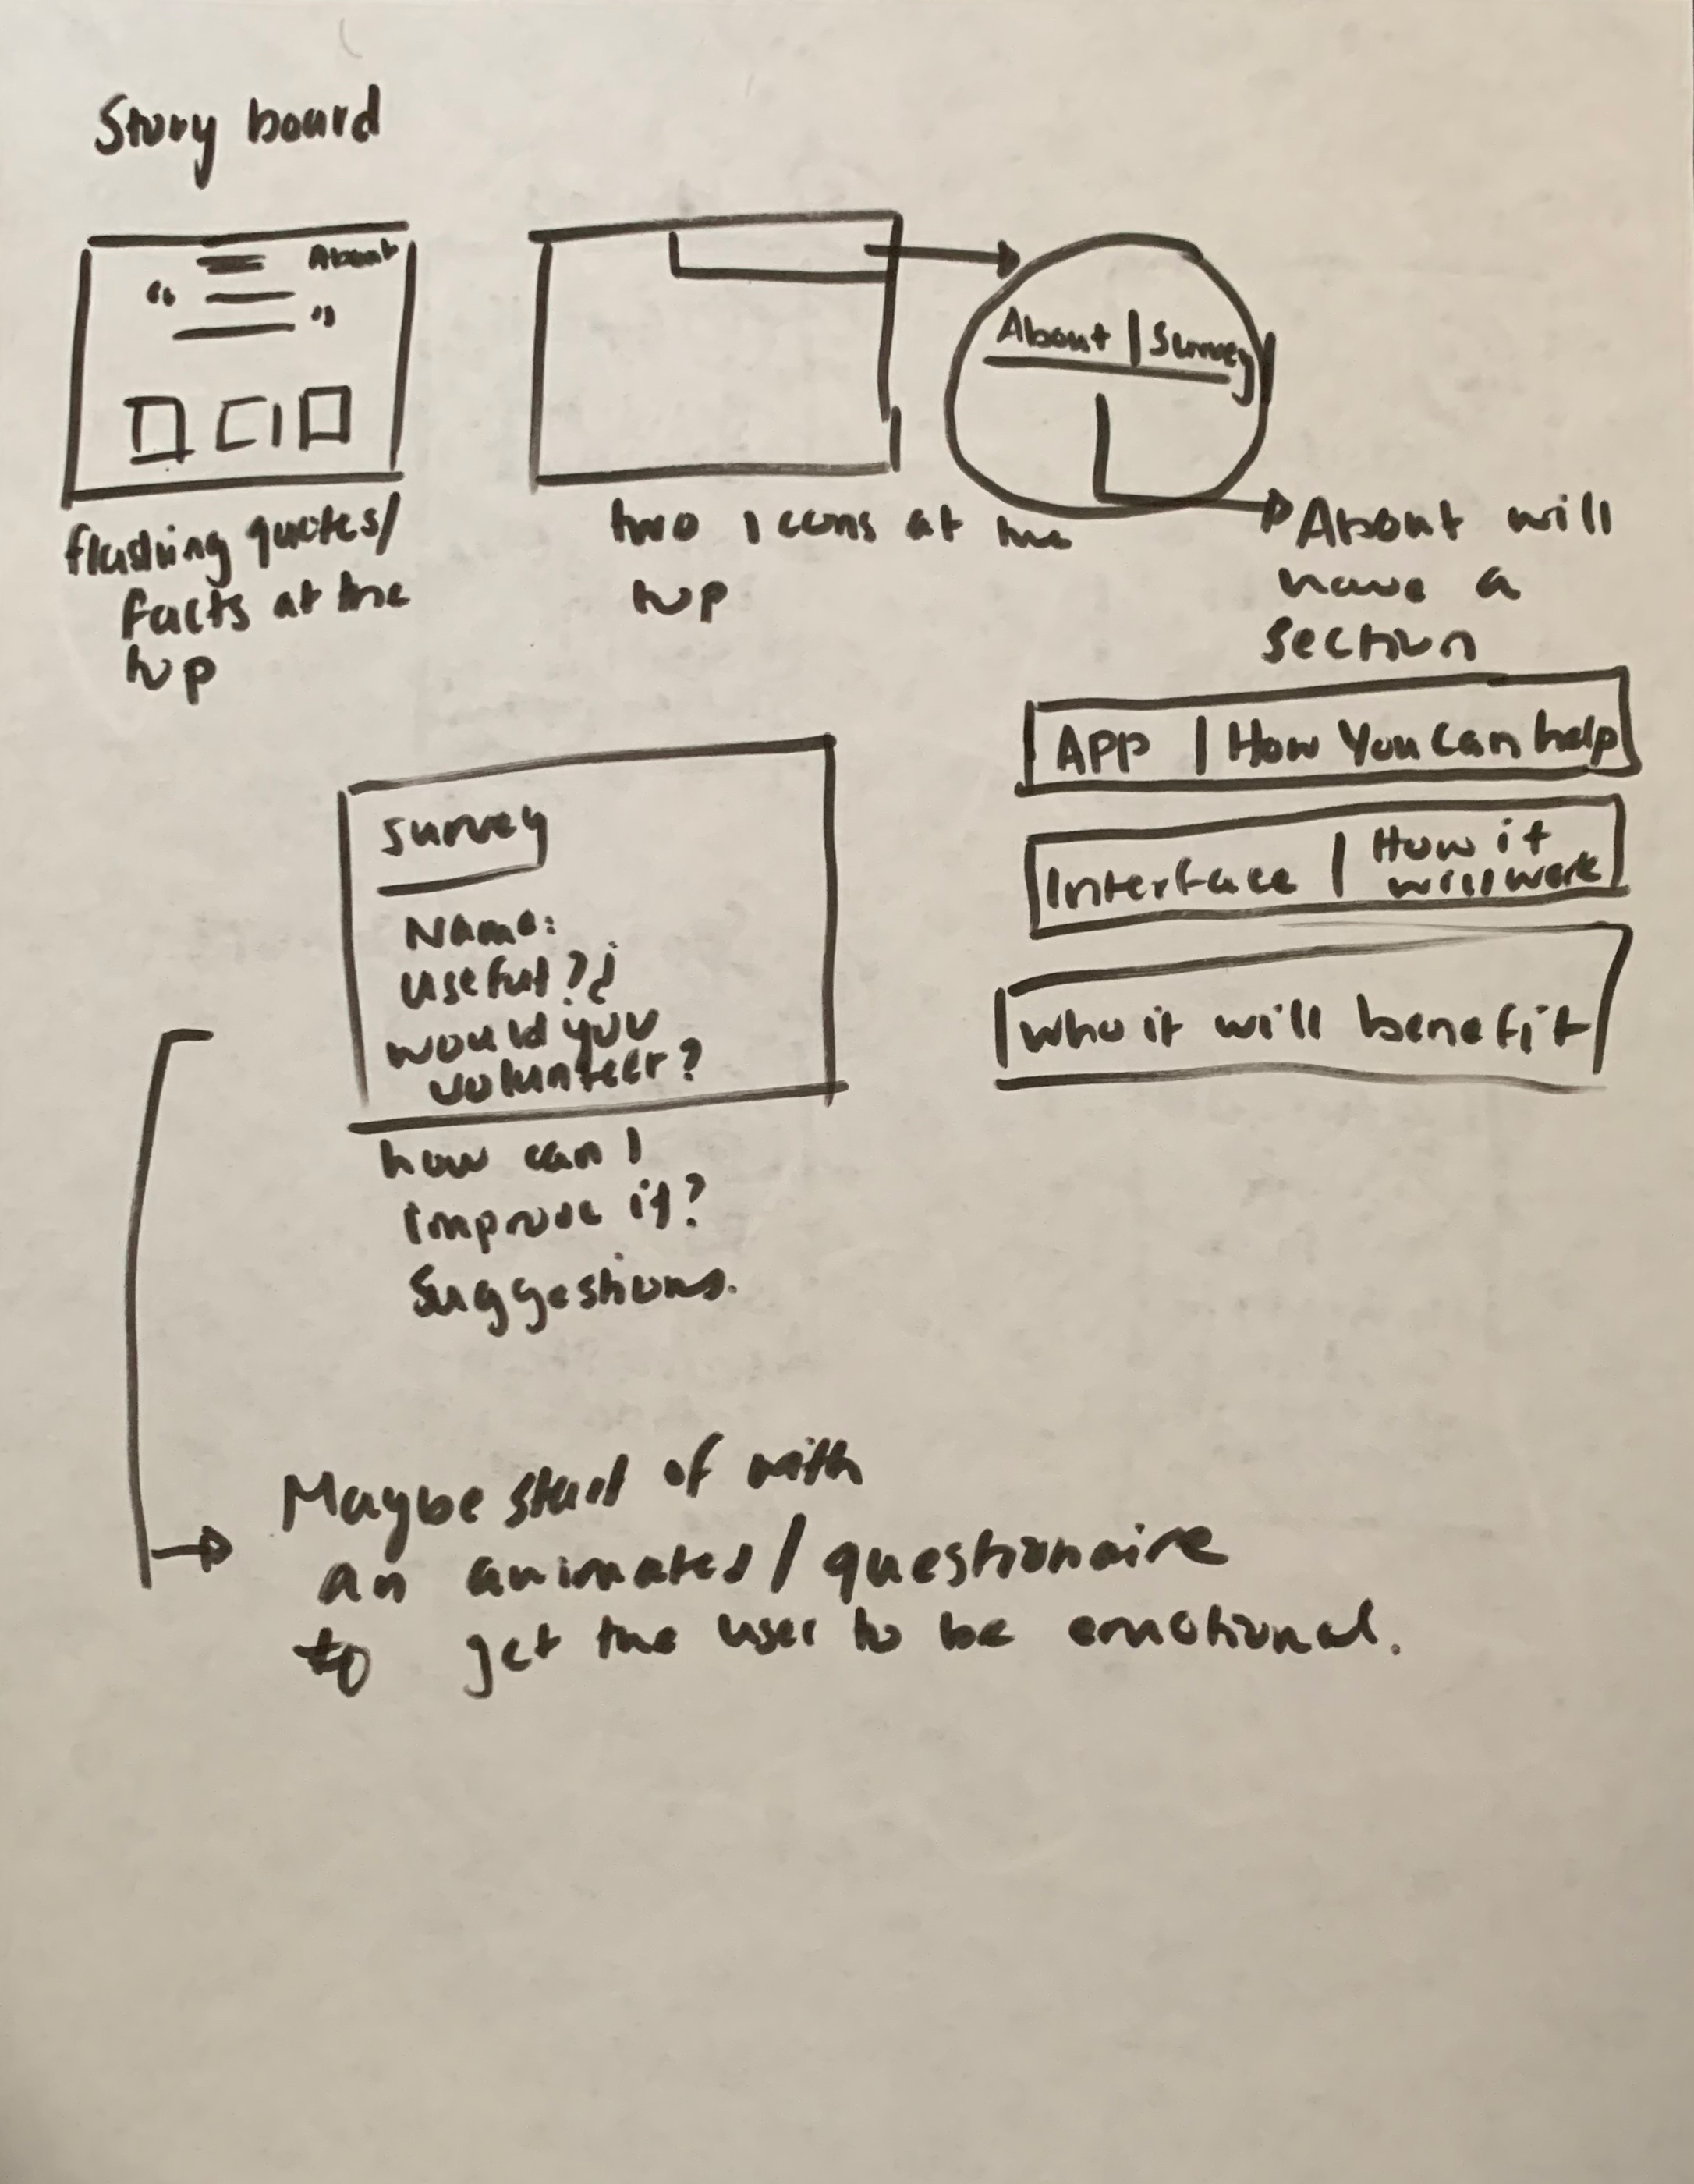 Story board
About
“ ”
flashing quotes/
facts at the
top
two Icons at the
top
About | Survey
About will
have a
section
APP | How You Can help
Interface | How it
will work
who it will benefit
survey
Name:
useful?¿
would you
volunteer?
how can I
improve it?
Suggestions.
Maybe start of with
an animated/questionaire
to get the user to be emotional.